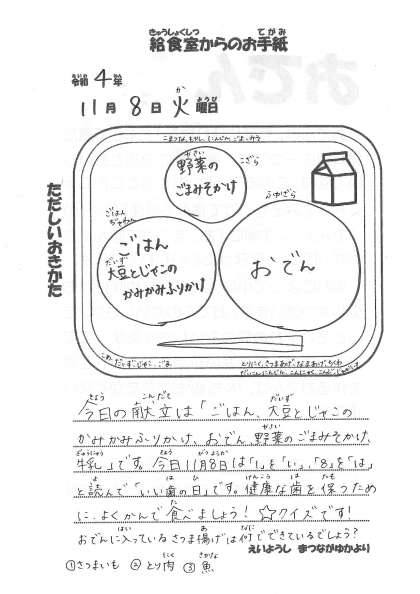 きゅうしょくしつ　てがみ
給食室からのお手紙
れいわ　ねん
令和 4年
がつ　にち　か　ようび
11月 8日 火曜日
ただしいおきかた
こまつな、もやし、にんじん、ごま、みそ
やさい
野菜の
ごまみそかけ
こざら
ごはん
ぢゃわん
ごはん
だいず
大豆とじゃこの
かみかみふりかけ
ふかざら
おでん
こめ、だいず、じゃこ、ごま
とりにく、さつまあげ、なまあげ、ちくわ
だいこん、にんじん、こんにゃく、こんぶ、じゃがいも
きょう　こんだて　だいず
今日の献立は「ごはん、大豆とじゃこの
やさい
かみかみふりかけ、おでん、野菜のごまみそかけ、
ぎゅうにゅう　きょう　がつ　か
牛乳」です。今日11月8日は「1」を「い」、「8」を「は」
よ　は　ひ　けんこう　は　たも
と読んで「いい歯の日」です。健康な歯を保つため
た
に、よくかんで食べましょう！☆クイズです！
はい　あ　なに
おでんに入っているさつま揚げは何でできているでしょう？
えいようし　まつながゆかより
にく　さかな
①さつまいも ②とり肉 ③魚